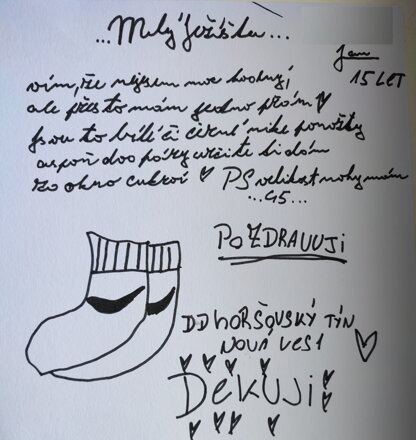 ...Milý Ježíšku...
Jan
15 LET
vím, že nejsem moc hodný,
ale přesto mám jedno přání
jsou to bílé či černé nike ponožky
aspoň dva páry určitě ti dám
za okno cukroví PS velikost nohy mám
...45...
POZDRAVUJI
DD HORŠOVSKÝ TÝN
NOVÁ VES 1
DĚKUJI!